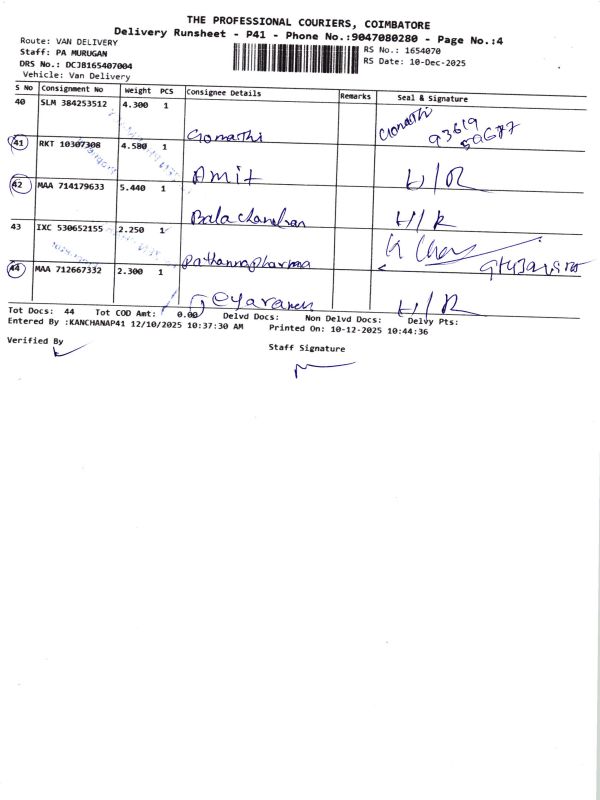 THE PROFESSIONAL COURIERS, COIMBATORE
Delivery Runsheet - P41 - Phone No.:9047080280 - Page No.:4
Route: VAN DELIVERY
RS No.: 1654070
Staff: PA MURUGAN
RS Date: 10-Dec-2025
DRS No.: DCJB165407004
Vehicle: Van Delivery
S No Consignment No Weight PCS Consignee Details Remarks Seal & Signature
40 SLM 384253512 4.300 1 Gomathi Gomathi
93619
59677
41 RKT 10307308 4.580 1 Amit H/R
42 MAA 714179633 5.440 1 Balachandran H/R
43 IXC 530652155 2.250 1 Pathannapharma
44 MAA 712667332 2.300 1 H/R
Tot Docs: 44 Tot COD Amt: 0.00 Delvd Docs: Non Delvd Docs: Delvy Pts:
Entered By :KANCHANAP41 12/10/2025 10:37:30 AM Printed On: 10-12-2025 10:44:36
Verified By
Staff Signature